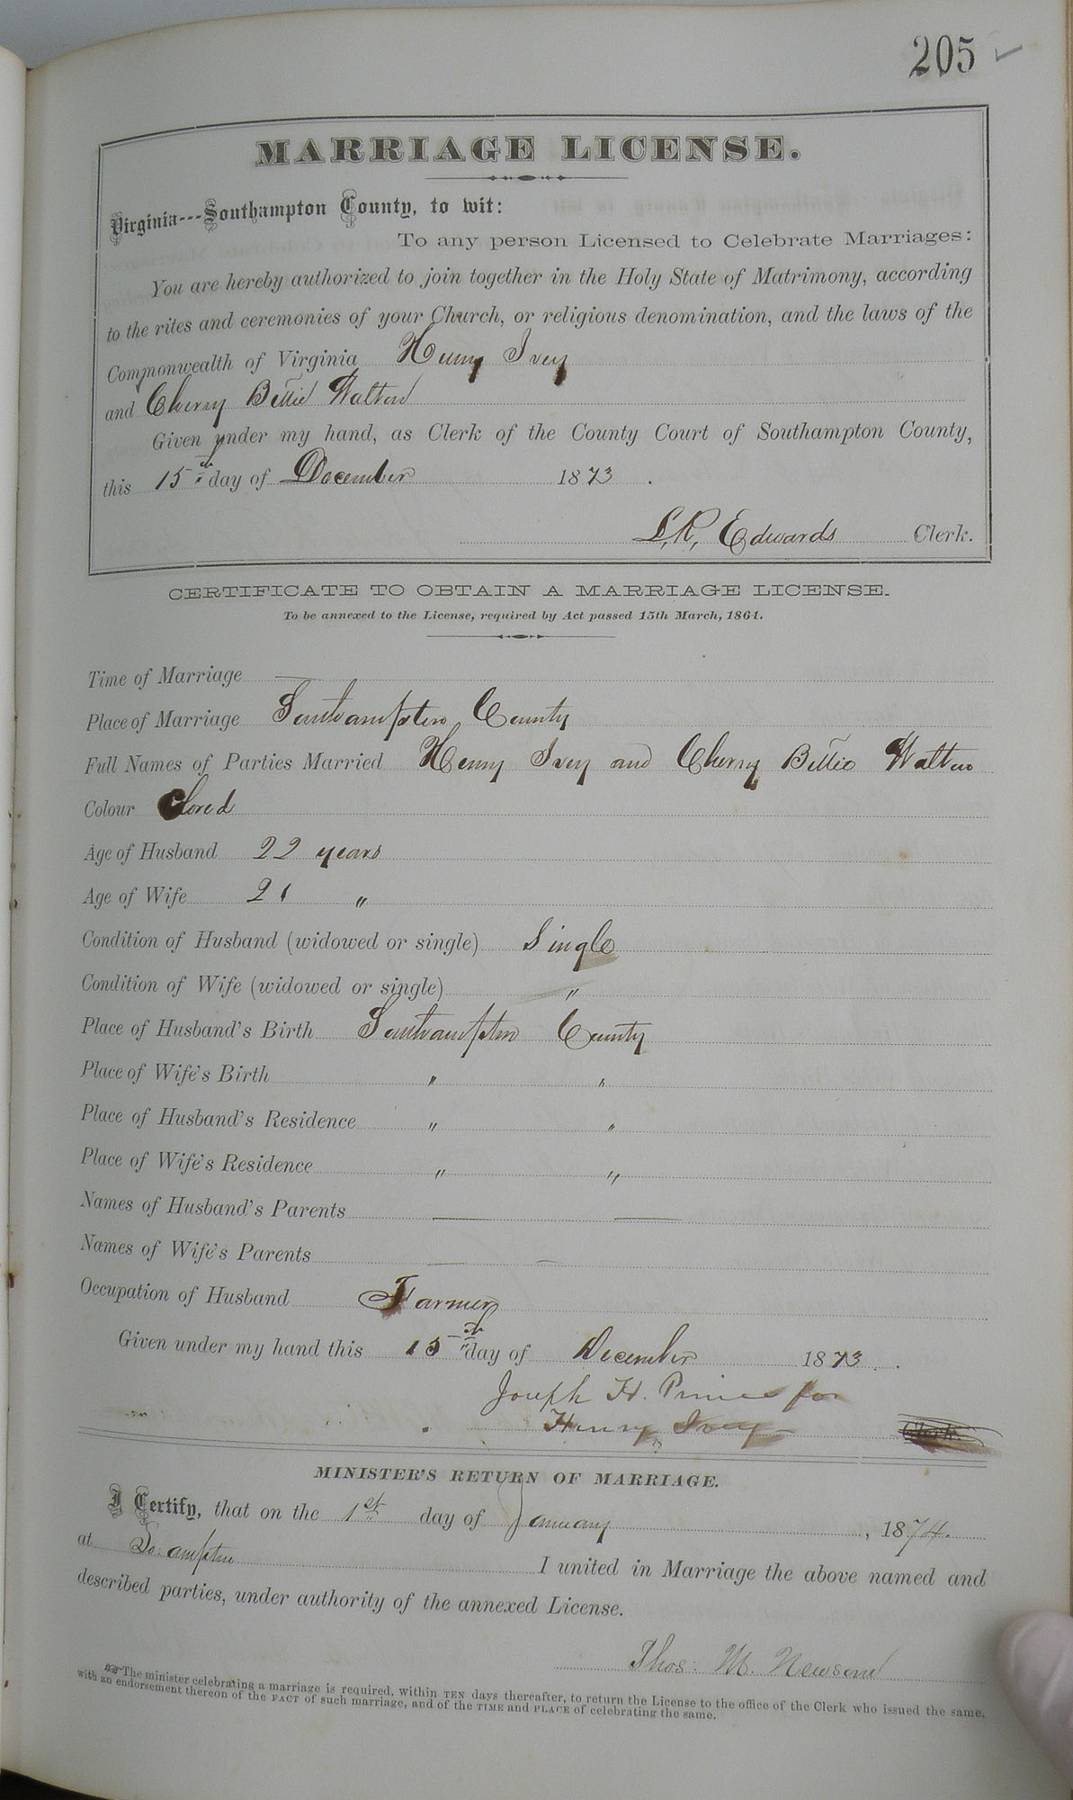 205
MARRIAGE LICENSE.
Virginia---Southampton County, to wit:
To any person Licensed to Celebrate Marriages:
You are hereby authorized to join together in the Holy State of Matrimony, according
to the rites and ceremonies of your Church, or religious denomination, and the laws of the
Commonwealth of Virginia Henry Ivey
and Cherry Bettie Walton
Given under my hand, as Clerk of the County Court of Southampton County,
this 15th day of December 1873.
L.R. Edwards Clerk.
CERTIFICATE TO OBTAIN A MARRIAGE LICENSE.
To be annexed to the License, required by Act passed 15th March, 1864.
Time of Marriage —
Place of Marriage Southampton County
Full Names of Parties Married Henry Ivey and Cherry Bettie Walton
Colour Colored
Age of Husband 22 years
Age of Wife 21 "
Condition of Husband (widowed or single) Single
Condition of Wife (widowed or single) "
Place of Husband's Birth Southampton County
Place of Wife's Birth " "
Place of Husband's Residence " "
Place of Wife's Residence " "
Names of Husband's Parents — —
Names of Wife's Parents — —
Occupation of Husband Farmer
Given under my hand this 15th day of December 1873.
Joseph H. Prince for
Henry Ivey Clerk.
MINISTER'S RETURN OF MARRIAGE.
I Certify, that on the 1st day of January, 1874.
at So:ampton I united in Marriage the above named and
described parties, under authority of the annexed License.
Thos: M. Newsom
The minister celebrating a marriage is required, within TEN days thereafter, to return the License to the office of the Clerk who issued the same,
with an endorsement thereon of the FACT of such marriage, and of the TIME and PLACE of celebrating the same.